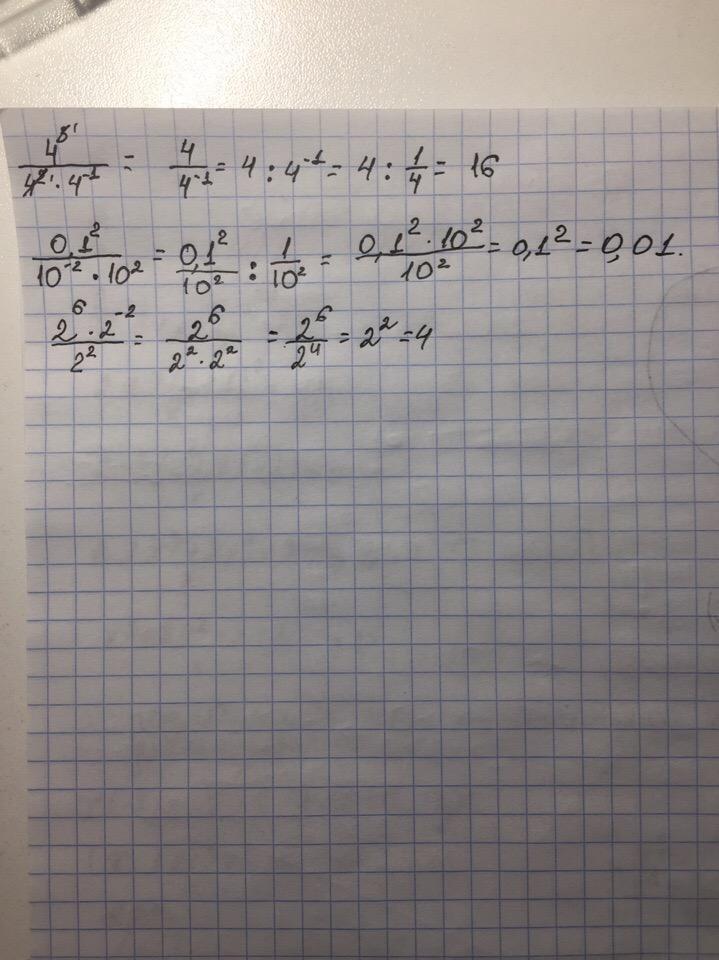 4^3 1 / 4^2 1 · 4^-1 = 4 / 4^-1 = 4 : 4^-1 = 4 : 1/4 = 16
0,1^2 / 10^-2 · 10^2 = 0,1^2 / 10^2 : 1 / 10^2 = 0,1^2 · 10^2 / 10^2 = 0,1^2 = 0,01.
2^6 · 2^-2 / 2^2 = 2^6 / 2^2 · 2^2 = 2^6 / 2^4 = 2^2 = 4